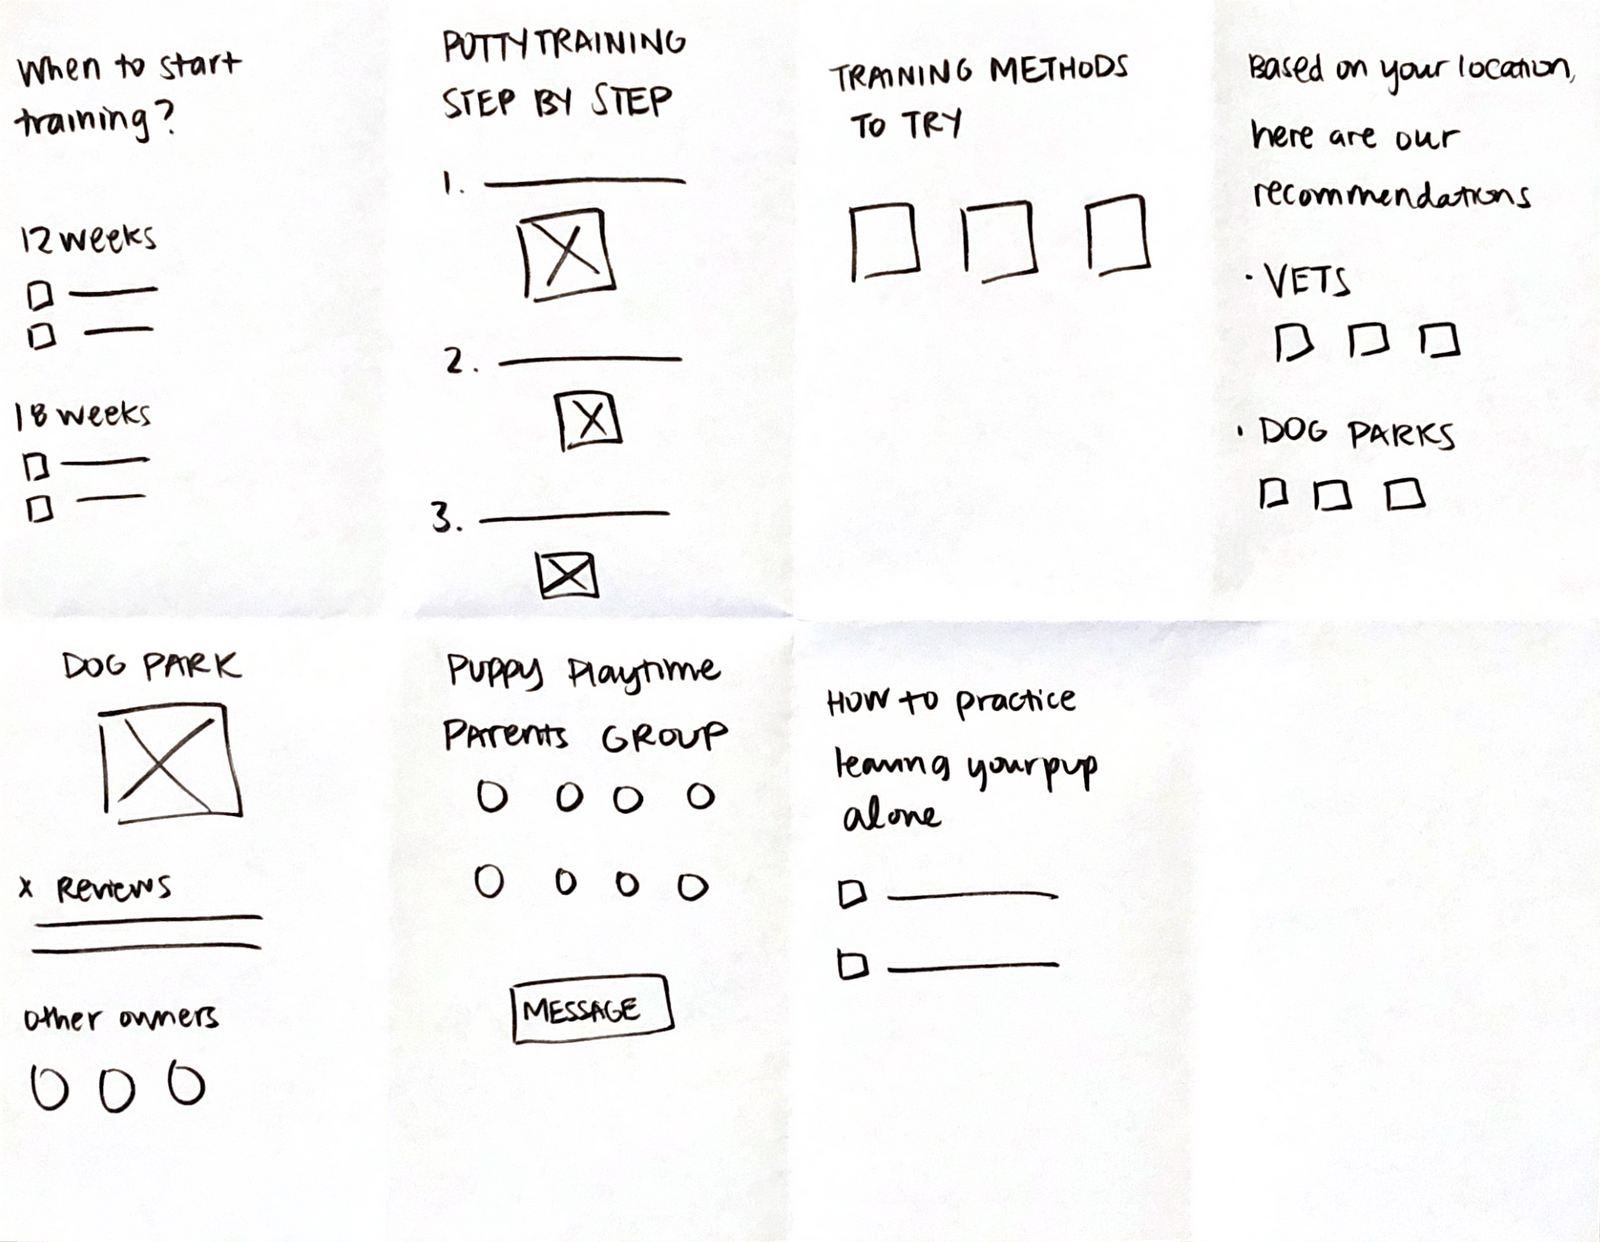 When to start
training?
12 weeks
18 weeks
POTTY TRAINING
STEP BY STEP
1.
2.
3.
TRAINING METHODS
TO TRY
Based on your location,
here are our
recommendations
· VETS
· DOG PARKS
DOG PARK
x Reviews
other owners
Puppy Playtime
Parents GROUP
MESSAGE
HOW to practice
leaving your pup
alone